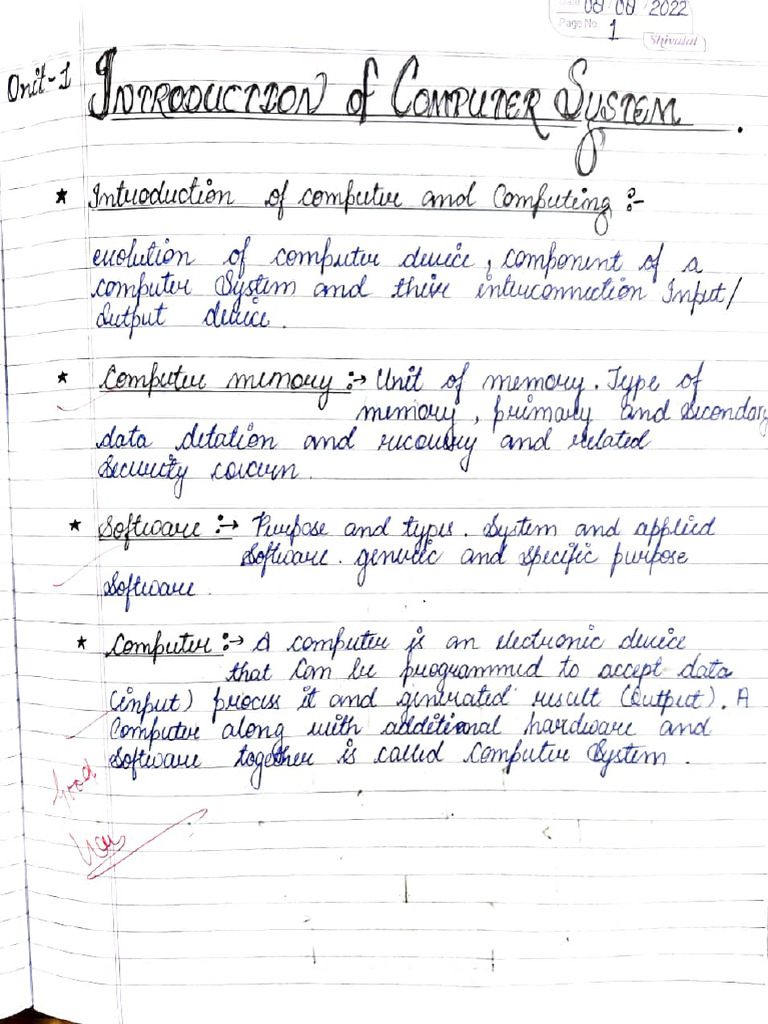 Date 08/08/2022
Page No. 1
Shivalal
Unit-1 INTRODUCTION of COMPUTER SYSTEM.
* Introduction of computer and Computing :-
evolution of computer device, component of a
computer System and their interconnection Input/
Output device.
* Computer memory :→ Unit of memory. Type of
memory, primary and Secondary
data detation and recovery and related
Security concern.
* Software :→ Purpose and types. System and applied
Software. generic and specific purpose
Software.
* Computer :→ A computer is an electronic device
that can be programmed to accept data
(input) process it and generated result (output). A
Computer along with additional hardware and
Software together is called Computer System.
Good